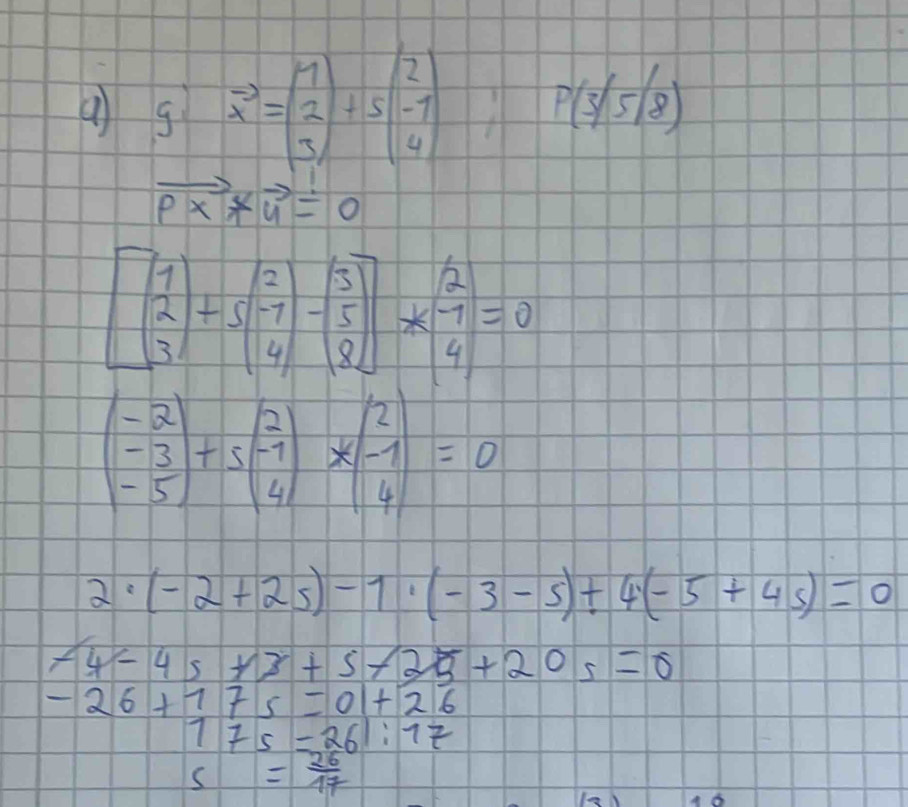 a) g: x⃗ = (1 2 3) + s (2 -1 4) ; P(3/5/8)
PX⃗ * u⃗ =! 0
[(1 2 3) + s (2 -1 4) - (3 5 8)] * (2 -1 4) = 0
(-2 -3 -5) + s (2 -1 4) * (2 -1 4) = 0
2·(-2+2s)-1·(-3-s)+4(-5+4s)=0
-4-4s+3+s-25+20s=0
-26+17s=0|+26
17s=26|:17
s = 26/17